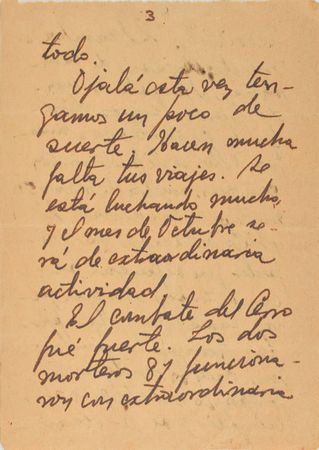 3
todo.
Ojalá esta vez ten-
gamos un poco de
suerte. Hacen mucha
falta tus viajes. Se
está luchando mucho,
y el mes de Octubre se-
rá de extraordinaria
actividad.
El combate del
fué fuerte. Los dos
morteros 81 funciona-
ron con extraordinaria